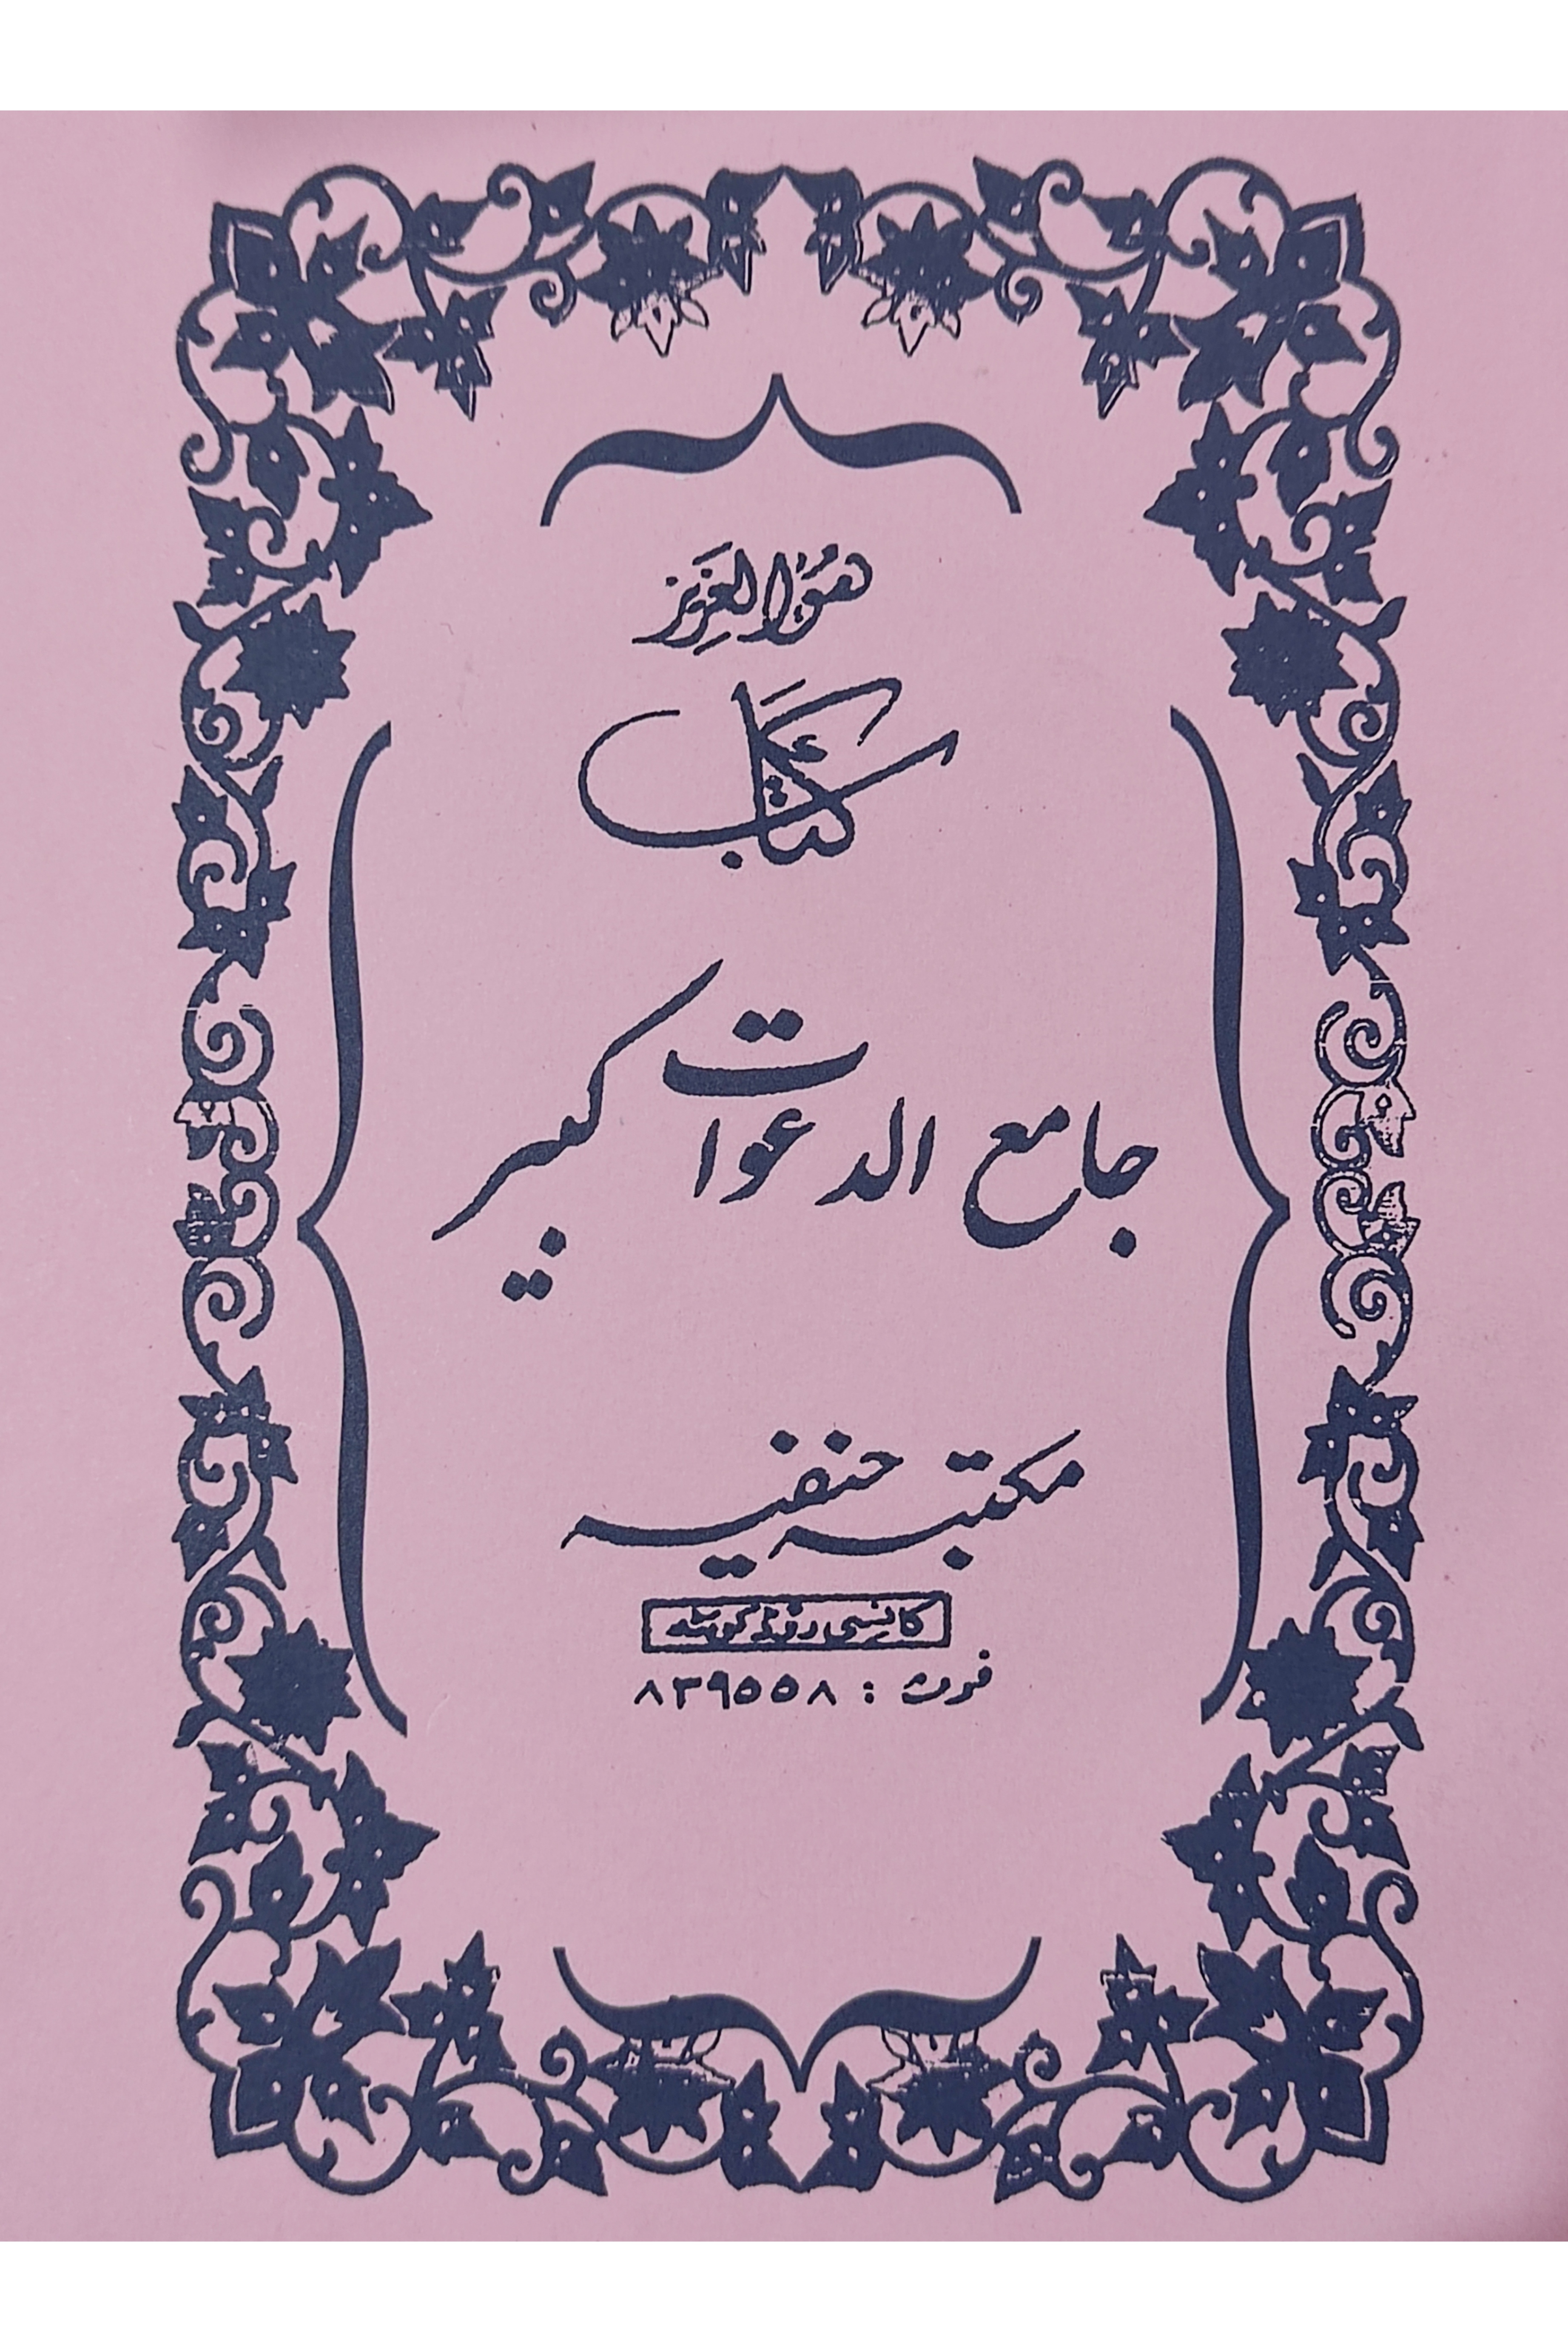 هُوَ العَزِيز
كتاب
جامع الدعوات كبير
مکتبہ حنفیہ
کانسی روڈ کوئٹہ
فون : ۸۳۹۵۵۸